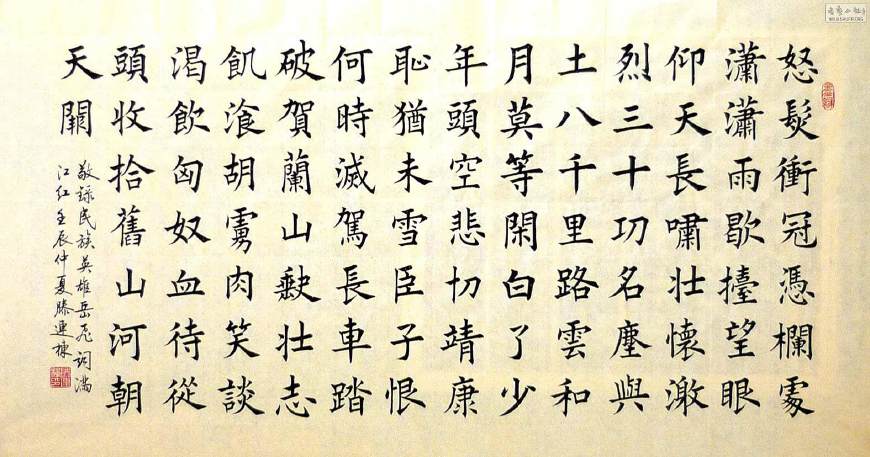 怒髮衝冠憑欄處
瀟瀟雨歇擡望眼
仰天長嘯壯懷激
烈三十功名塵與
土八千里路雲和
月莫等閑白了少
年頭空悲切靖康
恥猶未雪臣子恨
何時滅駕長車踏
破賀蘭山缺壯志
飢湌胡虜肉笑談
渴飲匈奴血待從
頭收拾舊山河朝
天闕
敬録民族英雄岳飛詞滿
江紅壬辰仲夏滕連棟